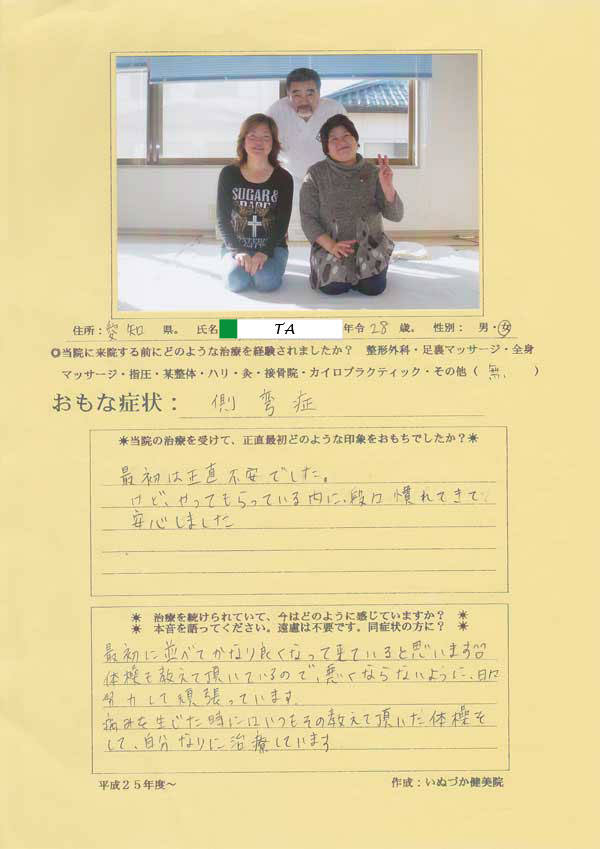 SUGAR &
住所：愛知 県。 氏名 TA 年令 28 歳。 性別： 男・女
◎当院に来院する前にどのような治療を経験されましたか？ 整形外科・足裏マッサージ・全身
マッサージ・指圧・某整体・ハリ・灸・接骨院・カイロプラクティック・その他（ 無、 ）
おもな症状： 側弯症
＊当院の治療を受けて、正直最初どのような印象をおもちでしたか？＊
最初は正直不安でした。
けど、やってもらっている内に、段々慣れてきて
安心しました
＊ 治療を続けられていて、今はどのように感じていますか？ ＊
＊ 本音を語ってください。遠慮は不要です。同症状の方に？ ＊
最初に並べてかなり良くなって来ていると思います
体操も教えて頂いているので、悪くならないように、日々
努力して頑張っています。
痛みを生じた時にはいつもその教えて頂いた体操を
して、自分なりに治療しています
平成２５年度～ 作成：いぬづか健美院